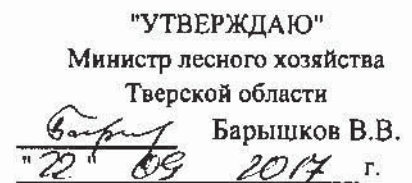 "УТВЕРЖДАЮ"
Министр лесного хозяйства
Тверской области
Барышков В.В.
"22" 09 2017 г.